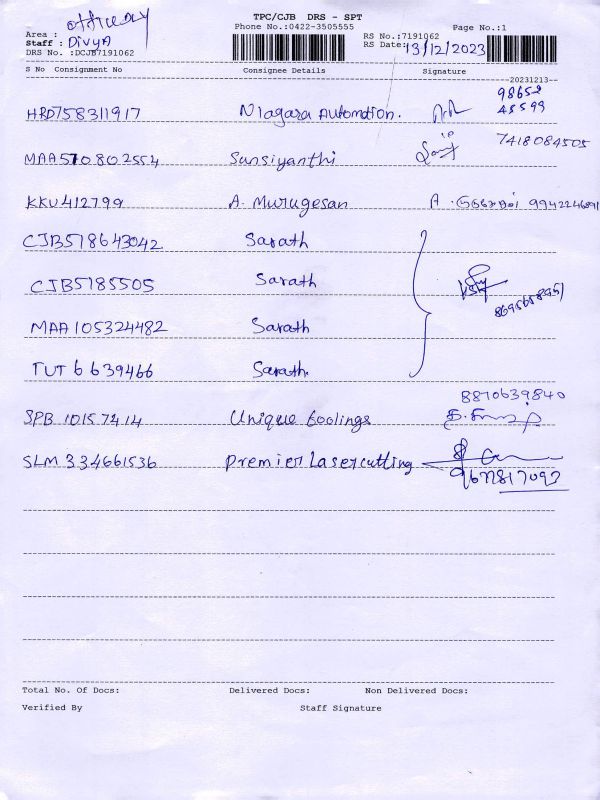 TPC/CJB DRS - SPT
Phone No.:0422-3505555
Page No.:1
Area :
Staff : Divya
DRS No. :DCJB7191062
RS No.:7191062
RS Date: 13/12/2023
S No Consignment No Consignee Details Signature
--20231213--
HRD758311917 Niagara Automation. 98652
45599
MAA570802554 Sunsiyanthi 7418084505
KKU412799 A. Murugesan A.
CJB518643042 Sarath
CJB5185505 Sarath
MAA105324482 Sarath
TUT6639466 Sarath.
8870639840
SPB 10157414 Unique toolings
SLM 334661536 Premier Lasercutting
Total No. Of Docs: Delivered Docs: Non Delivered Docs:
Verified By Staff Signature